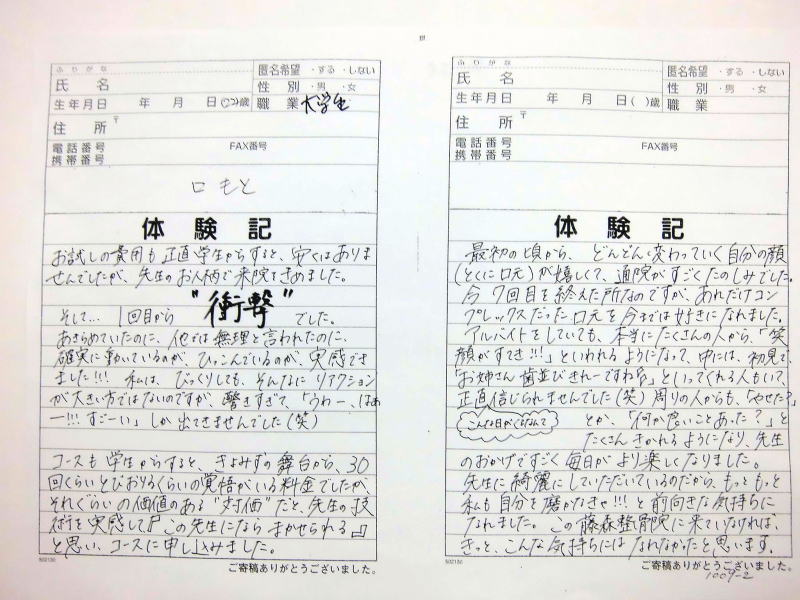 ふりがな
氏　名
匿名希望 ・する ・しない
性　別 ・男 ・女
生年月日　年　月　日(22)歳
職　業 大学生
住　所 〒
電話番号
FAX番号
携帯番号
口もと
体験記
お試しの費用も正直学生からすると、安くはありま
せんでしたが、先生のお人柄で来院できめました。
そして… 1回目から "衝撃" でした。
あきらめていたのに、他では無理と言われたのに、
確実に動いているのが、ひっこんでいるのが、実感でき
ました!!! 私は、びっくりしても、そんなにリアクション
が大きい方ではないのですが、驚きすぎて、「うわー、はぁ
ー!!! すごーい」しか出てきませんでした(笑)
コースも学生からすると、きよみずの舞台から、30
回くらいとびおりるくらいの覚悟がいる料金でしたが、
それぐらいの価値のある"対価"だと、先生の技
術を実感して『この先生になら まかせられる。』
と思い、コースに申し込みました。
502136
ご寄稿ありがとうございました。
ふりがな
氏　名
匿名希望 ・する ・しない
性　別 ・男 ・女
生年月日　年　月　日(　)歳
職　業
住　所 〒
電話番号
FAX番号
携帯番号
体験記
最初の頃から、どんどん変わっていく自分の顔
(とくに口元)が嬉しくて、通院がすごくたのしみでした。
今 7回目を終えた所なのですが、あれだけコン
プレックスだった口元を今までは好きになれました。
アルバイトをしていても、本当にたくさんの人から、「笑
顔がすてき!!!」といわれるようになって、中には、初見で、
「お姉さん 歯並びきれーですね」といってくれる人もいて、
正直信じられませんでした(笑) 周りの人からも、「やせた?」
こんな日がくるなんて
とか、「何か良いことあった?」と
たくさん きかれるようになり、先生
のおかげですごく 毎日がより楽しくなりました。
先生に綺麗にしていただいているのだから、もっともっと
私も自分を磨かなきゃ!!! と前向きな気持ちに
なれました。この藤森整骨院に来ていなければ、
きっと、こんな気持ちにはなれなかったと思います。
502136
ご寄稿ありがとうございました。
1009-2